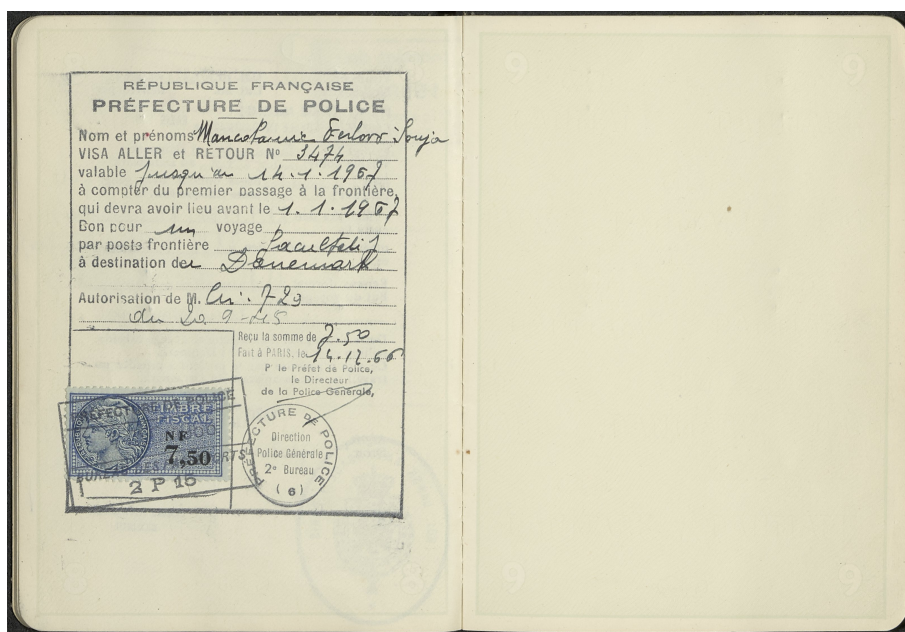 RÉPUBLIQUE FRANÇAISE
PRÉFECTURE DE POLICE
Nom et prénoms Mancoba née Ferlov Sonja
VISA ALLER et RETOUR Nº 3474
valable jusqu'au 14.1.1967
à compter du premier passage à la frontière,
qui devra avoir lieu avant le 1.1.1967
Bon pour un voyage
par poste frontière facultatif
à destination de Danemark
Autorisation de M. 729
du 20 9
Reçu la somme de 7.50
Fait à PARIS, le 14.12.66
P le Préfet de Police,
le Directeur
de la Police Générale,
PRÉFECTURE DE POLICE
Direction
Police Générale
2e Bureau
(6)
PRÉFECTURE DE POLICE
TIMBRE
FISCAL
NF
7,50
2 P 16